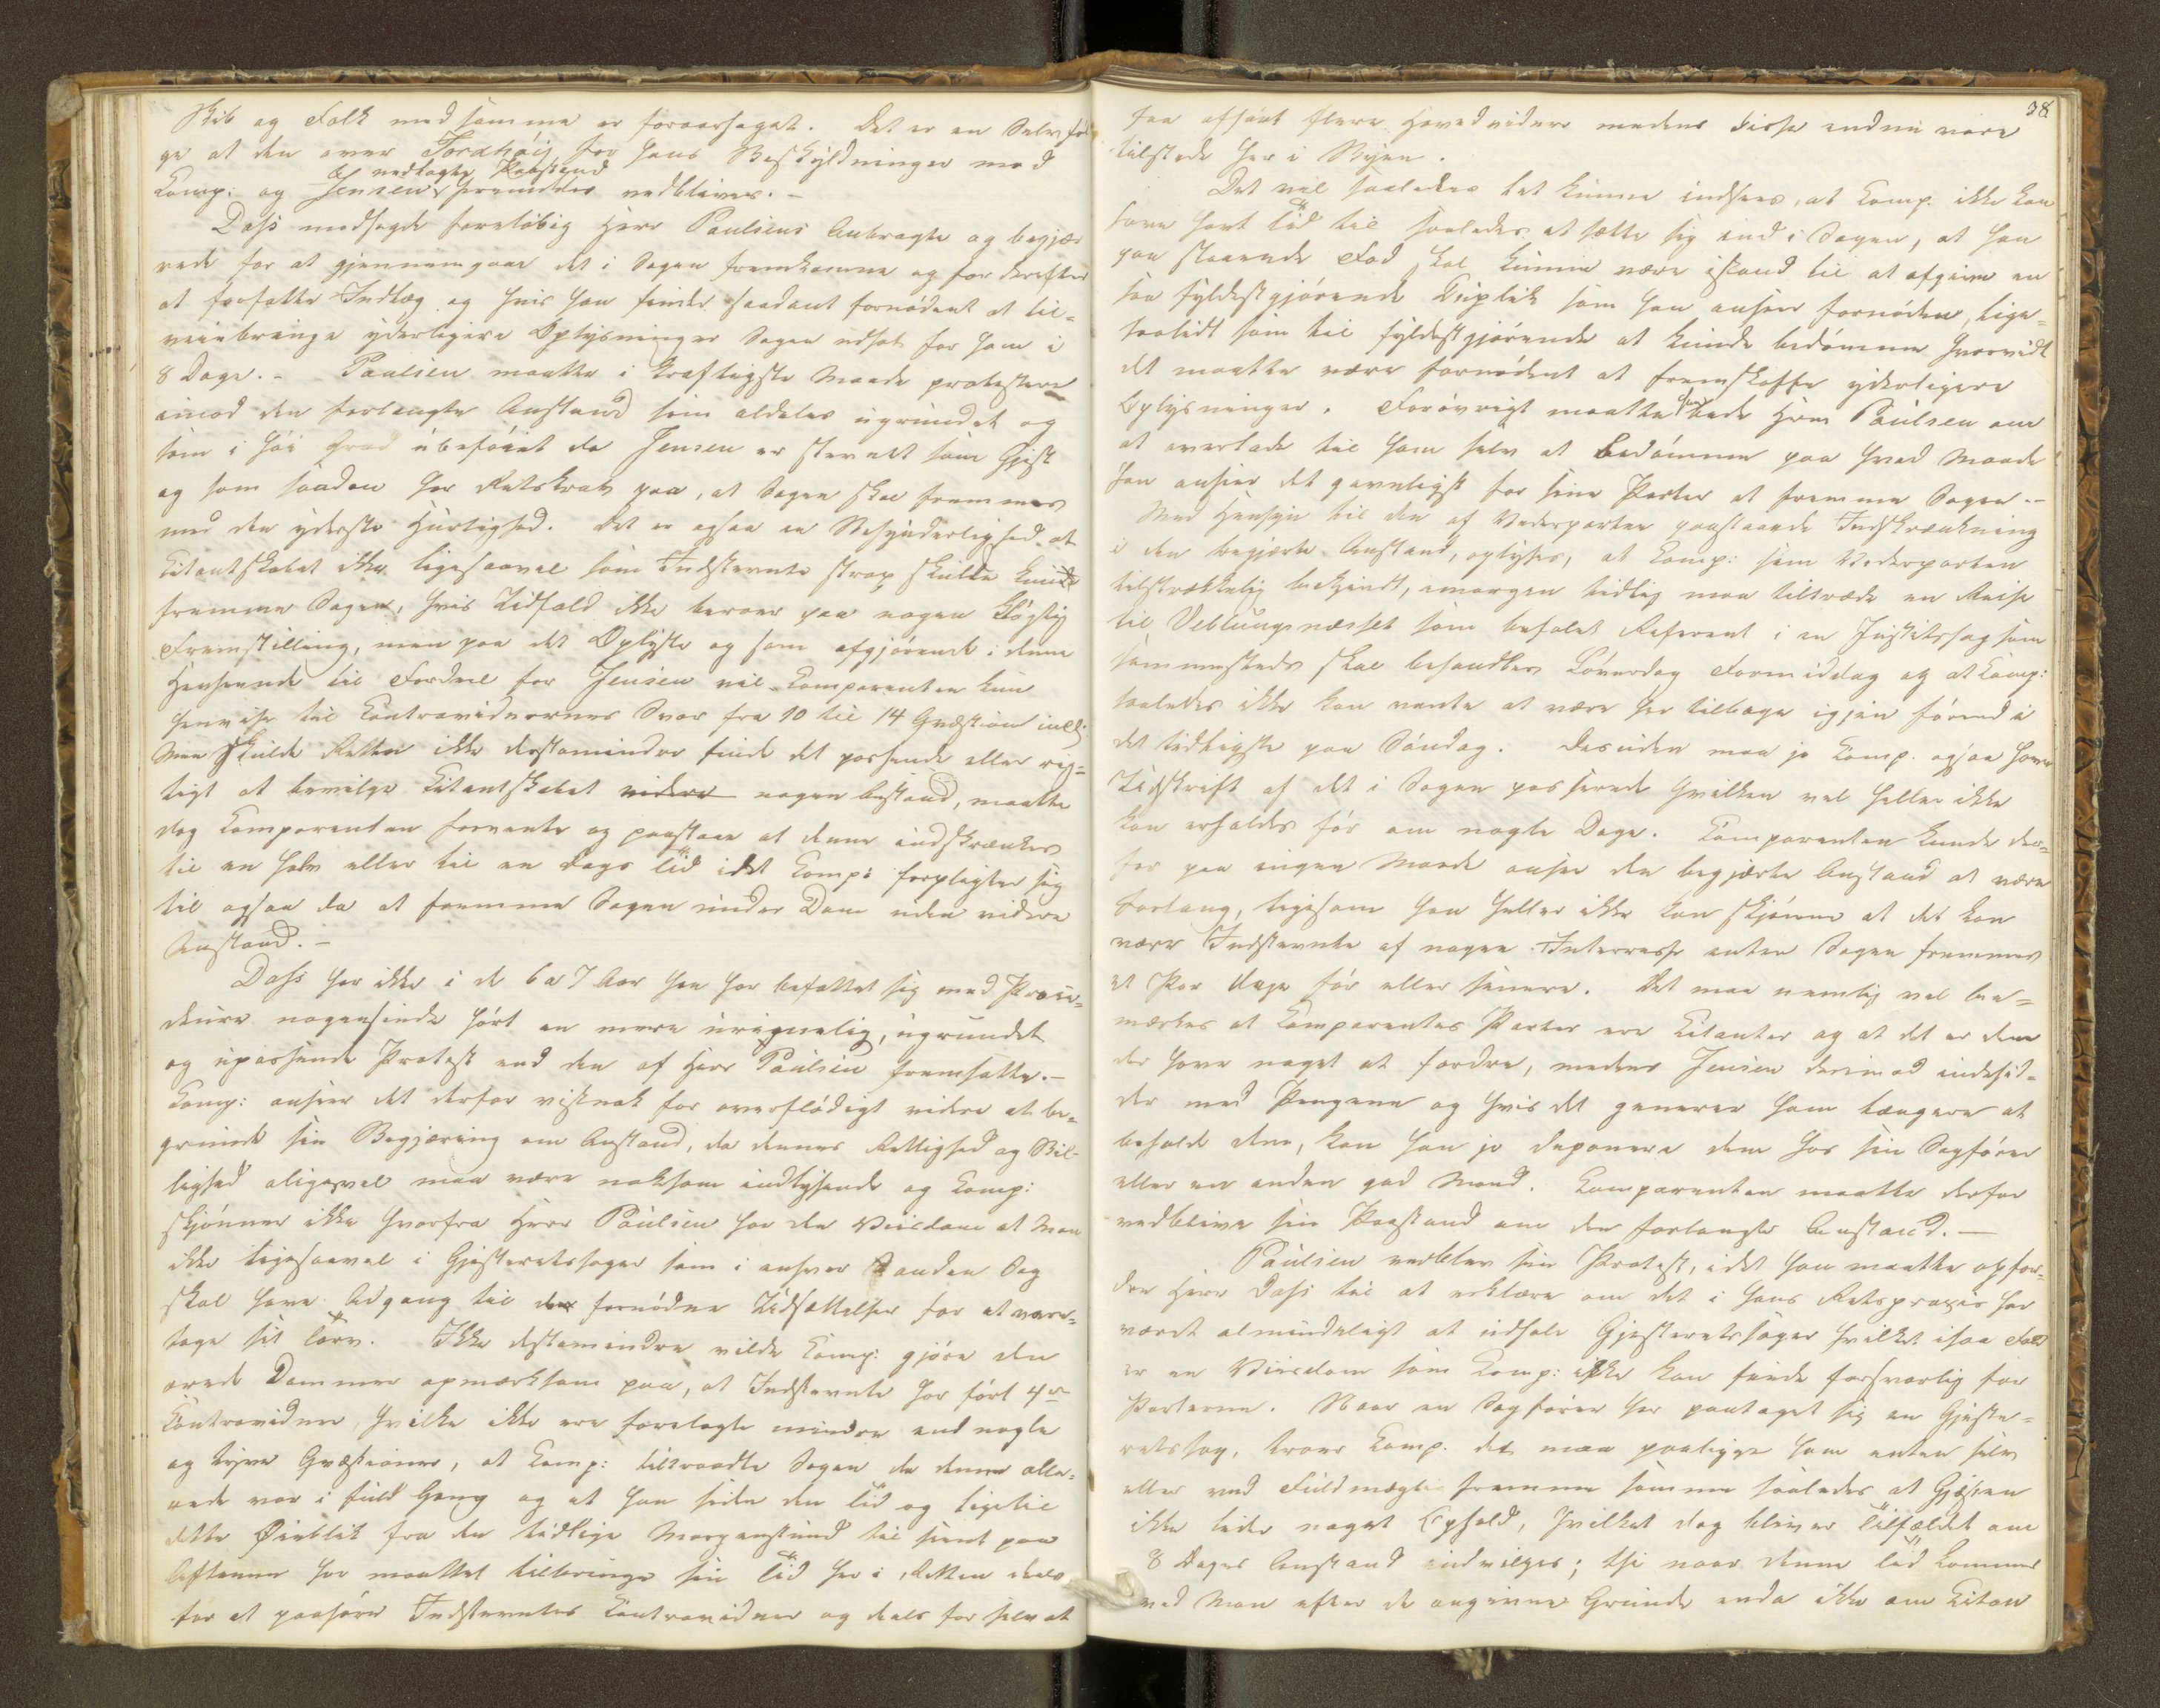 Skib og Folk med samme er foraarsaget. Det er en Selvføl
ge at den over Fordhøij for hans Beskyldninger mod
nedlagte Paastand
Comp: og Jensens fremdeles vedblives.-
Dass modsagde foreløbig Herr Paulsens Anbragte og begjær
rede for at gjennemgaae det i Sagen fremkomne og for derefter
at forfatte Indlæg og hvis han finder saadant fornødent at til=
veiebringe yderligere Oplysninger Sagen udsat for ham i
8 Dage.- Paulsen maatte i kraftigste Maade protestere
imod den forlangte Anstand som aldeles ugrundet og
som i høi Grad ubeføiet da Jensen er stevnet som Gjest
og som saadan har Retskrav paa, at Sagen skal fremmes
med den yderste Hurtighed. Det er ogsaa en Besynderlighed at
Citantskabet ikke ligesaavel som Indstevnte strax skulde kunde
fremme Sagen, hvis Udfald ikke beroer paa nogen kløgtig
Fremstilling, men paa det Oplyste og som afgjørende i denne
Henseende til Fordeel for Jensen vil Comparenten kun
henvise til Contravidnernes Svar fra 10 til 14 Qvæstion incl:
Men skulde Retten ikke destomindre finde det passende eller rig=
tigt at bevilge Citantskabet videre nogen Anstand, maatte
dog Comparenten formente og paastaae at denne indskrænkes
til en halv eller til en Dags Tid idet Comp: forpligter sig
til ogsaa da at fremme Sagen under Dom uden videre
Anstand.-
Dass har ikke i de 6 a 7 Aar han har befattet sig med Proce=
deure nogensinde hørt en mere urigmelig, ugrundet
og upassende Protest end den af Herr Paulsen fremsatte.-
Comp: anseer det derfor vistnok for overflødigt videre at be=
grunde sin Begjæring om Anstand, da dennes Rettighed og Bil-
lighed aligevel maa være noksom indlysende og Comp:
skjønner ikke hvorfra Herr Paulsen har den Viisdom at Man
ikke ligesaavel i Gjesteretssager som i enhver anden Sag
skal have Adgang til den fornødne Udsættelse for at vare=
tage sit Tarv. Ikke destomindre vilde Comp: gjøre den
ærede Dommer opmærksom paa, at Indstevnte har ført 4re
Contravidner, hvilke ikke ere forelagte mindre end nogle
og tyve Qvæstioner, at Comp: tiltraadte Sagen da denne alle=
rede var i fuld Gang og at han siden den Tid og ligetil
dette Øieblik fra den tidlige Morgenstund til sent paa
Aftenen har maattet tilbringe sin Tid her i Retten deels
for at paahøre Indstevntes Contravidner og deels for selv at
38
faa afhørt flere Hovedvidner medens disse endnu vare
tilstede her i Byen.
Det vil saaledes let kunne indsees, at Comp. ikke kan
have havt Tid til saaledes at sætte sig ind i Sagen, at han
paa staaende Fod skal kunne være istand til at afgive en
saa fyldestgjørende Duplik som han anseer fornøden, lige=
saalidt som til fyldestgjørende at kunde bedømme hvorvidt
det maatte være fornødent at fremskaffe yderligere
Oplysninger. Forøvrigt maatte han bede Herr Paulsen om
at overlade til ham selv at bedømme paa hvad Maade
han anseer det gavnligst for sine Parter at fremme Sagen.-
Med Hensyn til den af Vederparten paastaaede Indskrænkning
i den begjærte Anstand, oplyses, at Comp: som Vederparten
tilstrækkelig bekjendt, imorgen tidlig maa tiltræde en Reise
til Veblungsnæsset som befalet Referent i en Justitssag som
sammesteds skal behandles Løverdag Formiddag og at Comp:
saaledes ikke kan vente at være her tilbage igjen førend i
det tidligste paa Søndag. Desuden maa jo Comp. ogsaa have
Udskrift af det i Sagen passerede hvilken vel heller ikke
kan erholdes før om nogle Dage. Comparenten kunde der=
for paa ingen Maade ansee den begjærte Anstand at være
forlang, ligesom han heller ikke kan skjønne at det kan
være Indstevnte af nogen Interresse enten Sagen fremmes
et Par Dage før eller senere. Det maa nemlig vel be=
mærkes at Comparentes Parter ere Citanter og at det er dem
der have noget at fordre, medens Jensen derimod indesid=
der med Pengene og hvis det generer ham længere at
beholde dem, kan han jo deponere dem hos sin Sagfører
eller en anden god Mand. Comparenten maatte derfor
vedblive sin Paastand om den forlangte Anstand.-
Paulsen vedblev sin Protest, idet han maatte opfor=
dre Herr Dass til at erklære om det i hans Retspraxis har
været almindeligt at udsætte Gjesteretssager hvilket isaa Fald
er en Viisdom som Comp: ikke kan finde forsvarlig for
Parterne. Naar en Sagfører har paataget sig en Gjeste=
retssag, troer Comp. det maa paaligge ham enten selv
eller ved Fuldmægtig fremme samme saaledes at Gjesten
ikke lider noget Ophold, hvilket dog bliver Tilfældet om
8 Dages Anstand indvilges; thi naar denne Tid kommer
ved Man efter de angivne Grunde enda ikke om Citan